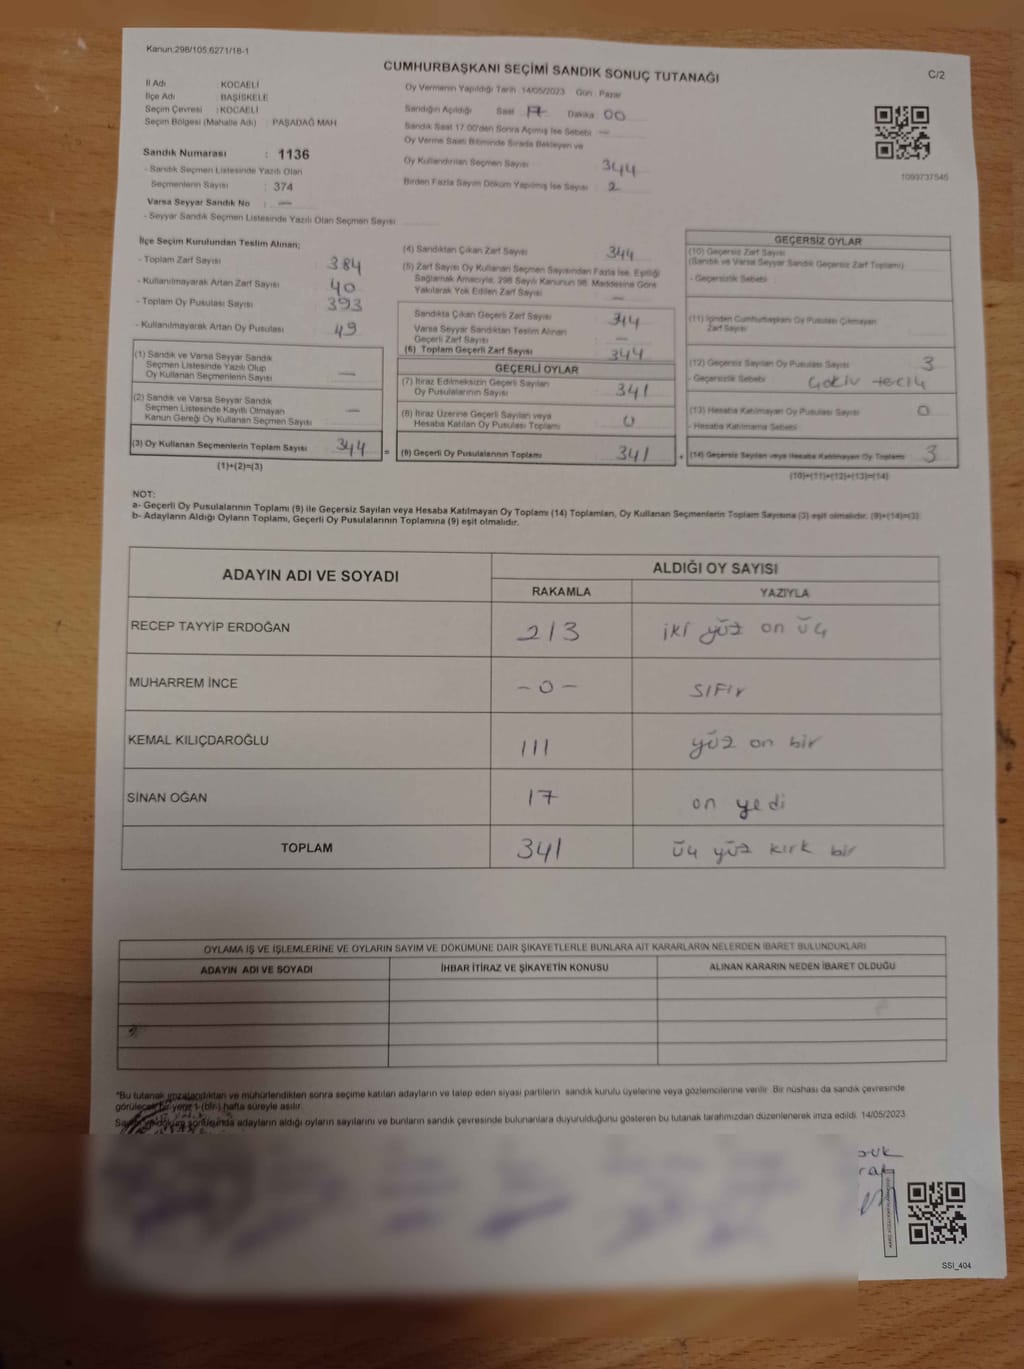 Kanun:298/105,6271/18-1
CUMHURBAŞKANI SEÇİMİ SANDIK SONUÇ TUTANAĞI
C/2
İl Adı : KOCAELİ
İlçe Adı : BAŞİSKELE
Seçim Çevresi : KOCAELİ
Seçim Bölgesi (Mahalle Adı) : PAŞADAĞ MAH
Oy Vermenin Yapıldığı Tarih :14/05/2023 Gün : Pazar
Sandığın Açıldığı Saat 17 Dakika 00
Sandık Saat 17:00'den Sonra Açılmış İse Sebebi —
Oy Verme Saati Bitiminde Sırada Bekleyen ve
Oy Kullandırılan Seçmen Sayısı 344
Birden Fazla Sayım Döküm Yapılmış İse Sayısı : 2
1093737545
Sandık Numarası : 1136
- Sandık Seçmen Listesinde Yazılı Olan
Seçmenlerin Sayısı : 374
Varsa Seyyar Sandık No : —
- Seyyar Sandık Seçmen Listesinde Yazılı Olan Seçmen Sayısı
İlçe Seçim Kurulundan Teslim Alınan;
- Toplam Zarf Sayısı 384
- Kullanılmayarak Artan Zarf Sayısı 40
- Toplam Oy Pusulası Sayısı 393
- Kullanılmayarak Artan Oy Pusulası 49
(1) Sandık ve Varsa Seyyar Sandık
Seçmen Listesinde Yazılı Olup
Oy Kullanan Seçmenlerin Sayısı —
(2) Sandık ve Varsa Seyyar Sandık
Seçmen Listesinde Kayıtlı Olmayan
Kanun Gereği Oy Kullanan Seçmen Sayısı —
(3) Oy Kullanan Seçmenlerin Toplam Sayısı 344 =
(1)+(2)=(3)
(4) Sandıktan Çıkan Zarf Sayısı 344
(5) Zarf Sayısı Oy Kullanan Seçmen Sayısından Fazla İse, Eşitliği
Sağlamak Amacıyla, 298 Sayılı Kanunun 98. Maddesine Göre
Yakılarak Yok Edilen Zarf Sayısı —
Sandıkta Çıkan Geçerli Zarf Sayısı 344
Varsa Seyyar Sandıktan Teslim Alınan
Geçerli Zarf Sayısı : —
(6) Toplam Geçerli Zarf Sayısı 344
GEÇERLİ OYLAR
(7) İtiraz Edilmeksizin Geçerli Sayılan
Oy Pusulalarının Sayısı 341
(8) İtiraz Üzerine Geçerli Sayılan veya
Hesaba Katılan Oy Pusulası Toplamı 0
(9) Geçerli Oy Pusulalarının Toplamı 341 +
GEÇERSİZ OYLAR
(10) Geçersiz Zarf Sayısı
(Sandık ve Varsa Seyyar Sandık Geçersiz Zarf Toplamı)
- Geçersizlik Sebebi
(11) İçinden Cumhurbaşkanı Oy Pusulası Çıkmayan
Zarf Sayısı
(12) Geçersiz Sayılan Oy Pusulası Sayısı 3
- Geçersizlik Sebebi
(13) Hesaba Katılmayan Oy Pusulası Sayısı 0
- Hesaba Katılmama Sebebi
(14) Geçersiz Sayılan veya Hesaba Katılmayan Oy Toplamı 3
(10)+(11)+(12)+(13)=(14)
NOT:
a- Geçerli Oy Pusulalarının Toplamı (9) ile Geçersiz Sayılan veya Hesaba Katılmayan Oy Toplamı (14) Toplamları, Oy Kullanan Seçmenlerin Toplam Sayısına (3) eşit olmalıdır. (9)+(14)=(3)
b- Adayların Aldığı Oyların Toplamı, Geçerli Oy Pusulalarının Toplamına (9) eşit olmalıdır.
ADAYIN ADI VE SOYADI
ALDIĞI OY SAYISI
RAKAMLA YAZIYLA
RECEP TAYYİP ERDOĞAN 213 iki yüz on üç
MUHARREM İNCE - 0 - sıfır
KEMAL KILIÇDAROĞLU 111 yüz on bir
SİNAN OĞAN 17 on yedi
TOPLAM 341 üç yüz kırk bir
OYLAMA İŞ VE İŞLEMLERİNE VE OYLARIN SAYIM VE DÖKÜMÜNE DAİR ŞİKAYETLERLE BUNLARA AİT KARARLARIN NELERDEN İBARET BULUNDUKLARI
ADAYIN ADI VE SOYADI İHBAR İTİRAZ VE ŞİKAYETİN KONUSU ALINAN KARARIN NEDEN İBARET OLDUĞU
*Bu tutanak imzalandıktan ve mühürlendikten sonra seçime katılan adayların ve talep eden siyasi partilerin sandık kurulu üyelerine veya gözlemcilerine verilir. Bir nüshası da sandık çevresinde
görülecek bir yere 1 (bir) hafta süreyle asılır.
Sayım ve döküm sonucunda adayların aldığı oyların sayılarını ve bunların sandık çevresinde bulunanlara duyurulduğunu gösteren bu tutanak tarafımızdan düzenlenerek imza edildi. 14/05/2023
SSI_404